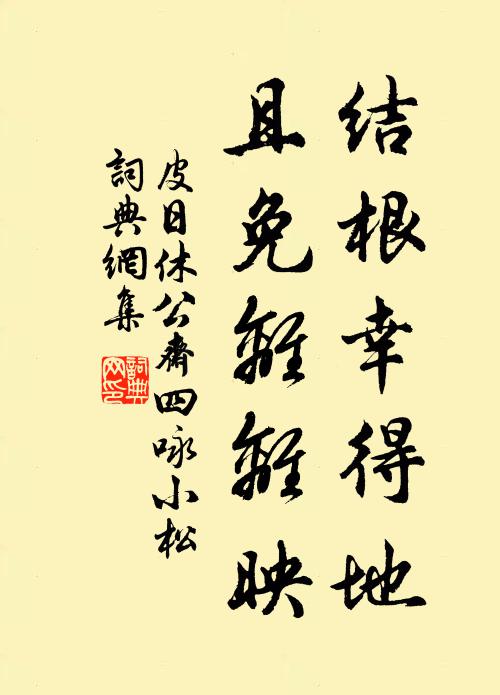 结根幸得地
且免離離映
皮日休公齋四咏小松
詞典網集
詞典网印